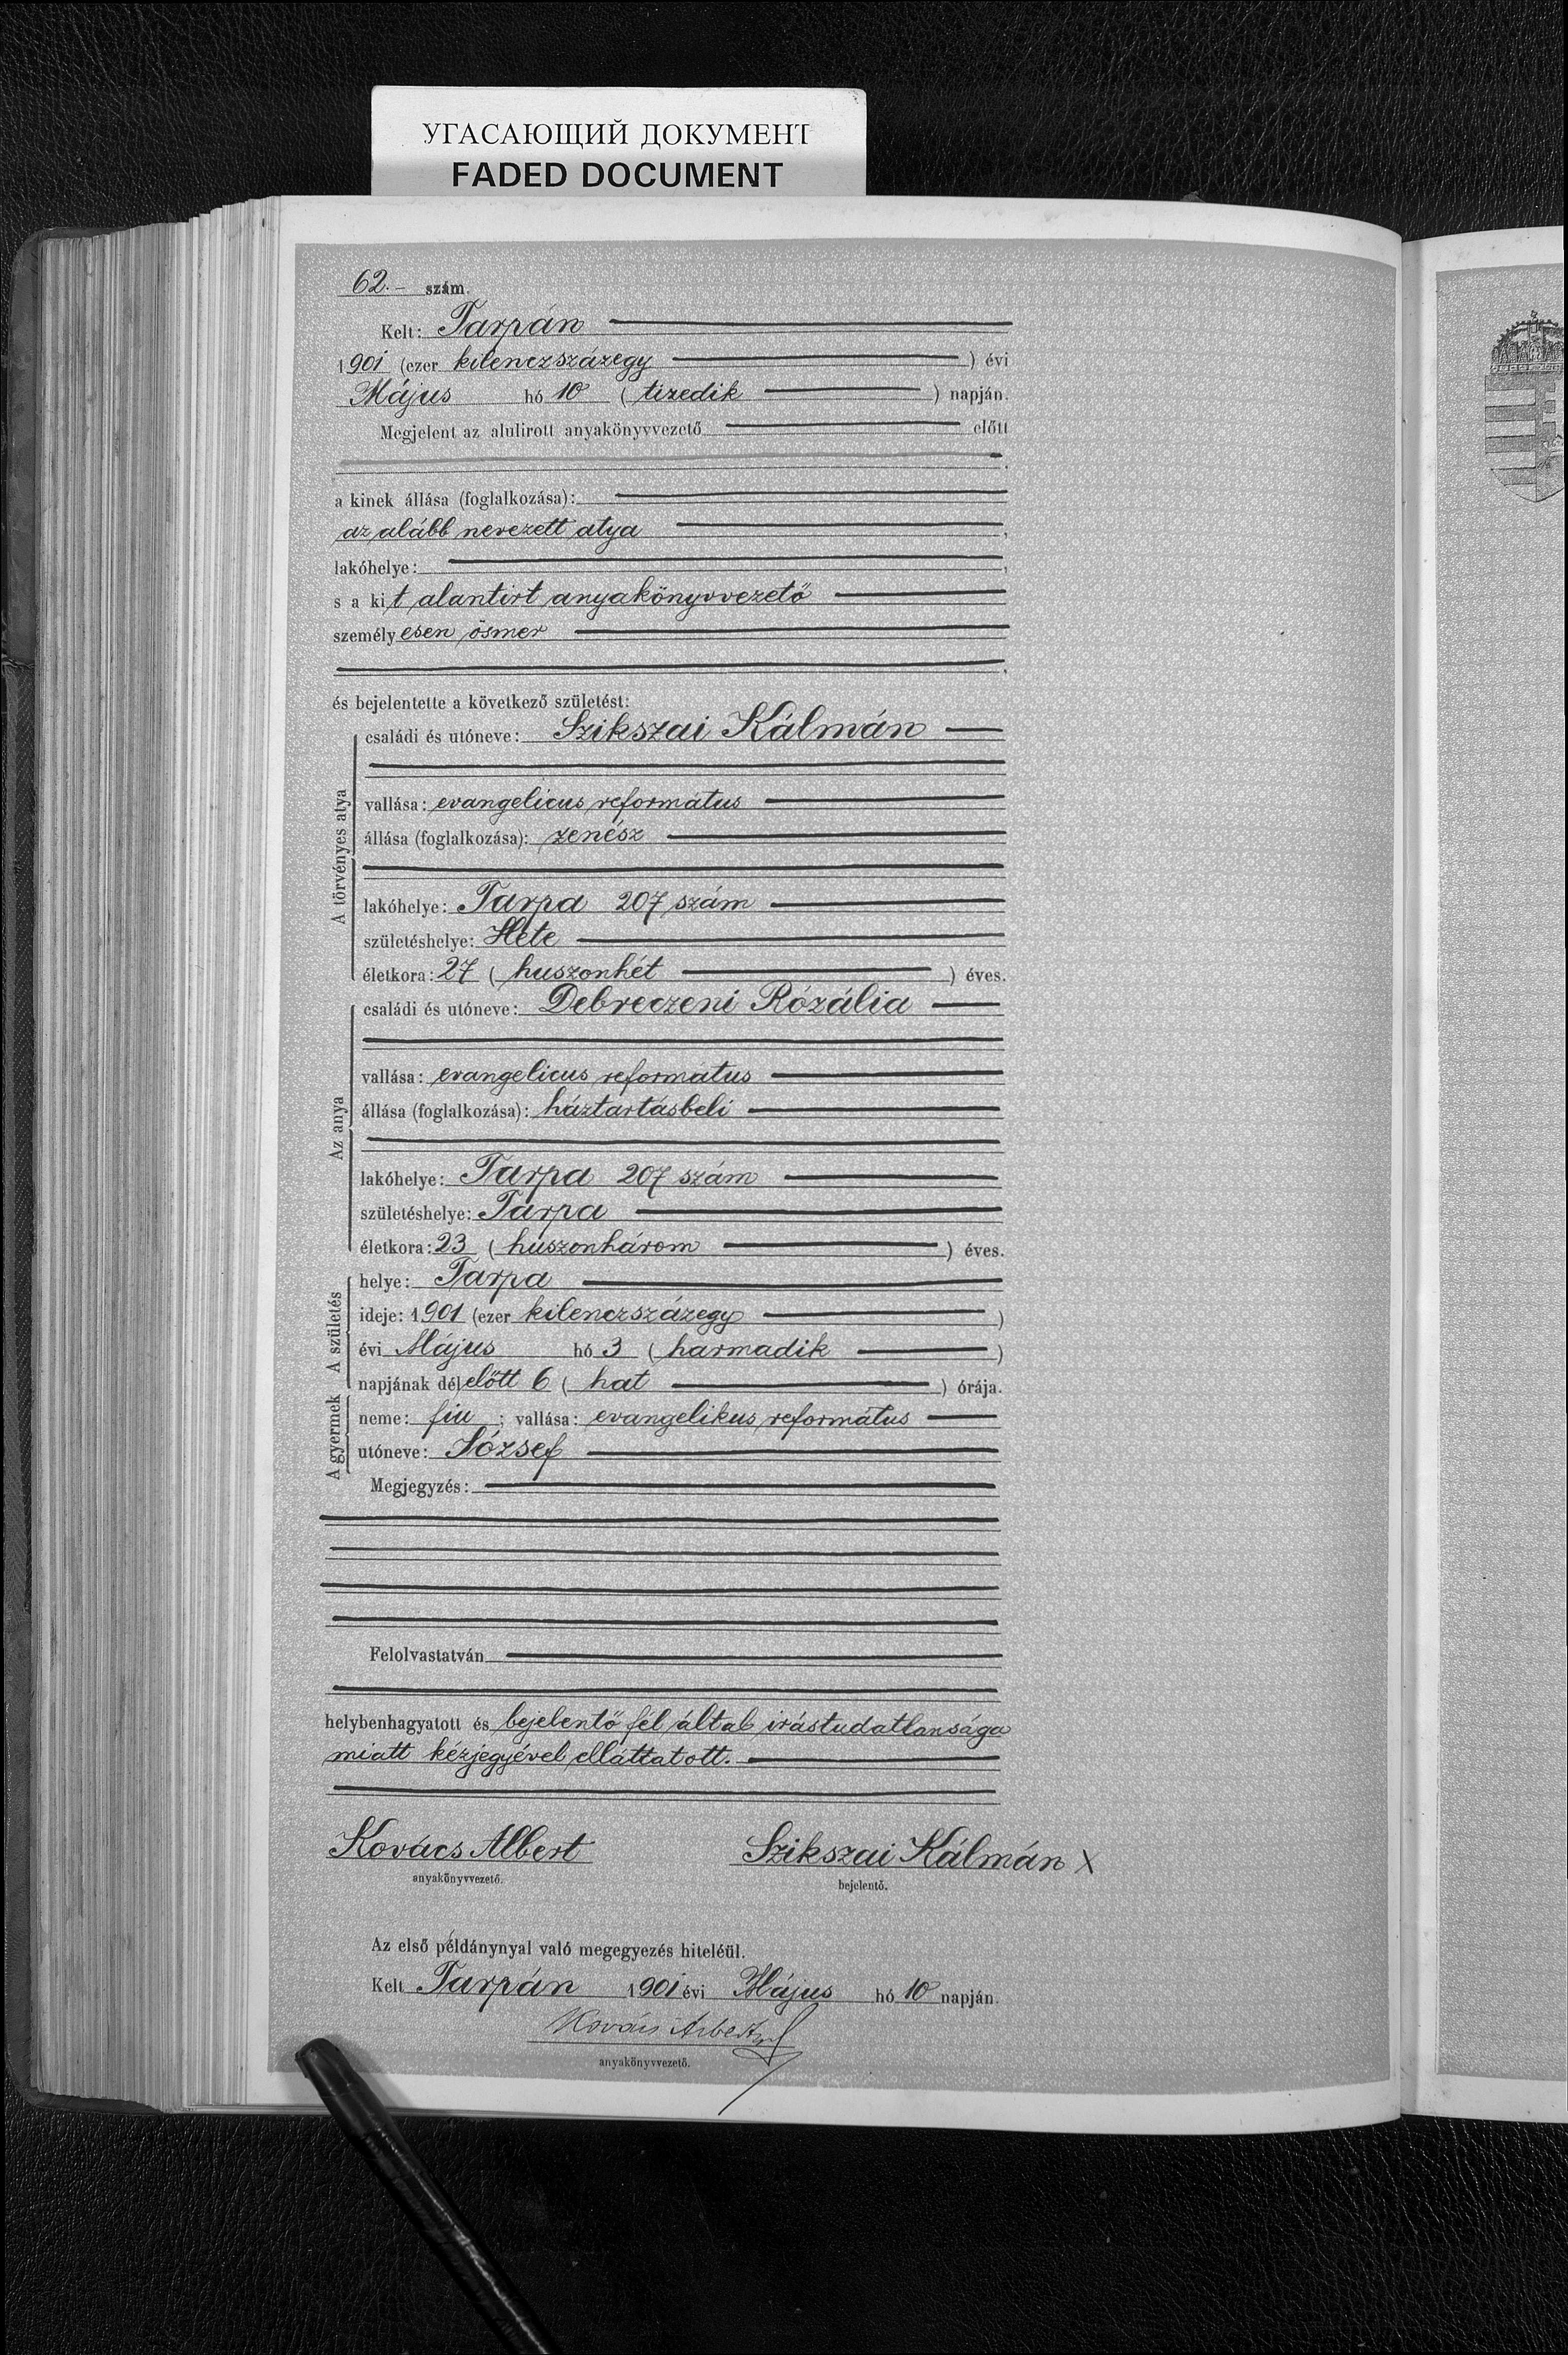 УГАСАЮЩИЙ ДОКУМЕНТ
FADED DOCUMENT
62.- szám.
Kelt: Tarpán
1901 (ezer kilenczszázegy ) évi
Május hó 10 ( tizedik ) napján.
Megjelent az alulirott anyakönyvvezető előtt
a kinek állása (foglalkozása):
az alább nevezett atya ,
lakóhelye: ,
s a kit alantirt anyakönyvvezető
személyesen ösmer
és bejelentette a következő születést:
A törvényes atya
családi és utóneve: Szikszai Kálmán
vallása: evangelicus református
állása (foglalkozása): zenész
lakóhelye: Tarpa 207 szám
születéshelye: Hete
életkora: 27 ( huszonhét ) éves.
Az anya
családi és utóneve: Debreczeni Rózália
vallása: evangelicus református
állása (foglalkozása): háztartásbeli
lakóhelye: Tarpa 207 szám
születéshelye: Tarpa
életkora: 23 ( huszonhárom ) éves.
A születés
helye: Tarpa
ideje: 1901 (ezer kilenczszázegy )
évi Május hó 3 ( harmadik )
napjának délelőtt 6 ( hat ) órája.
A gyermek
neme: fiu ; vallása: evangelikus református
utóneve: József
Megjegyzés:
Felolvastatván
helybenhagyatott és bejelentő fél által irástudatlansága
miatt kézjegyével elláttatott.
Kovács Albert Szikszai Kálmán X
anyakönyvvezető. bejelentő.
Az első példánynyal való megegyezés hiteléül.
Kelt Tarpán 1901 évi Május hó 10 napján.
Kovács Albert
anyakönyvvezető.